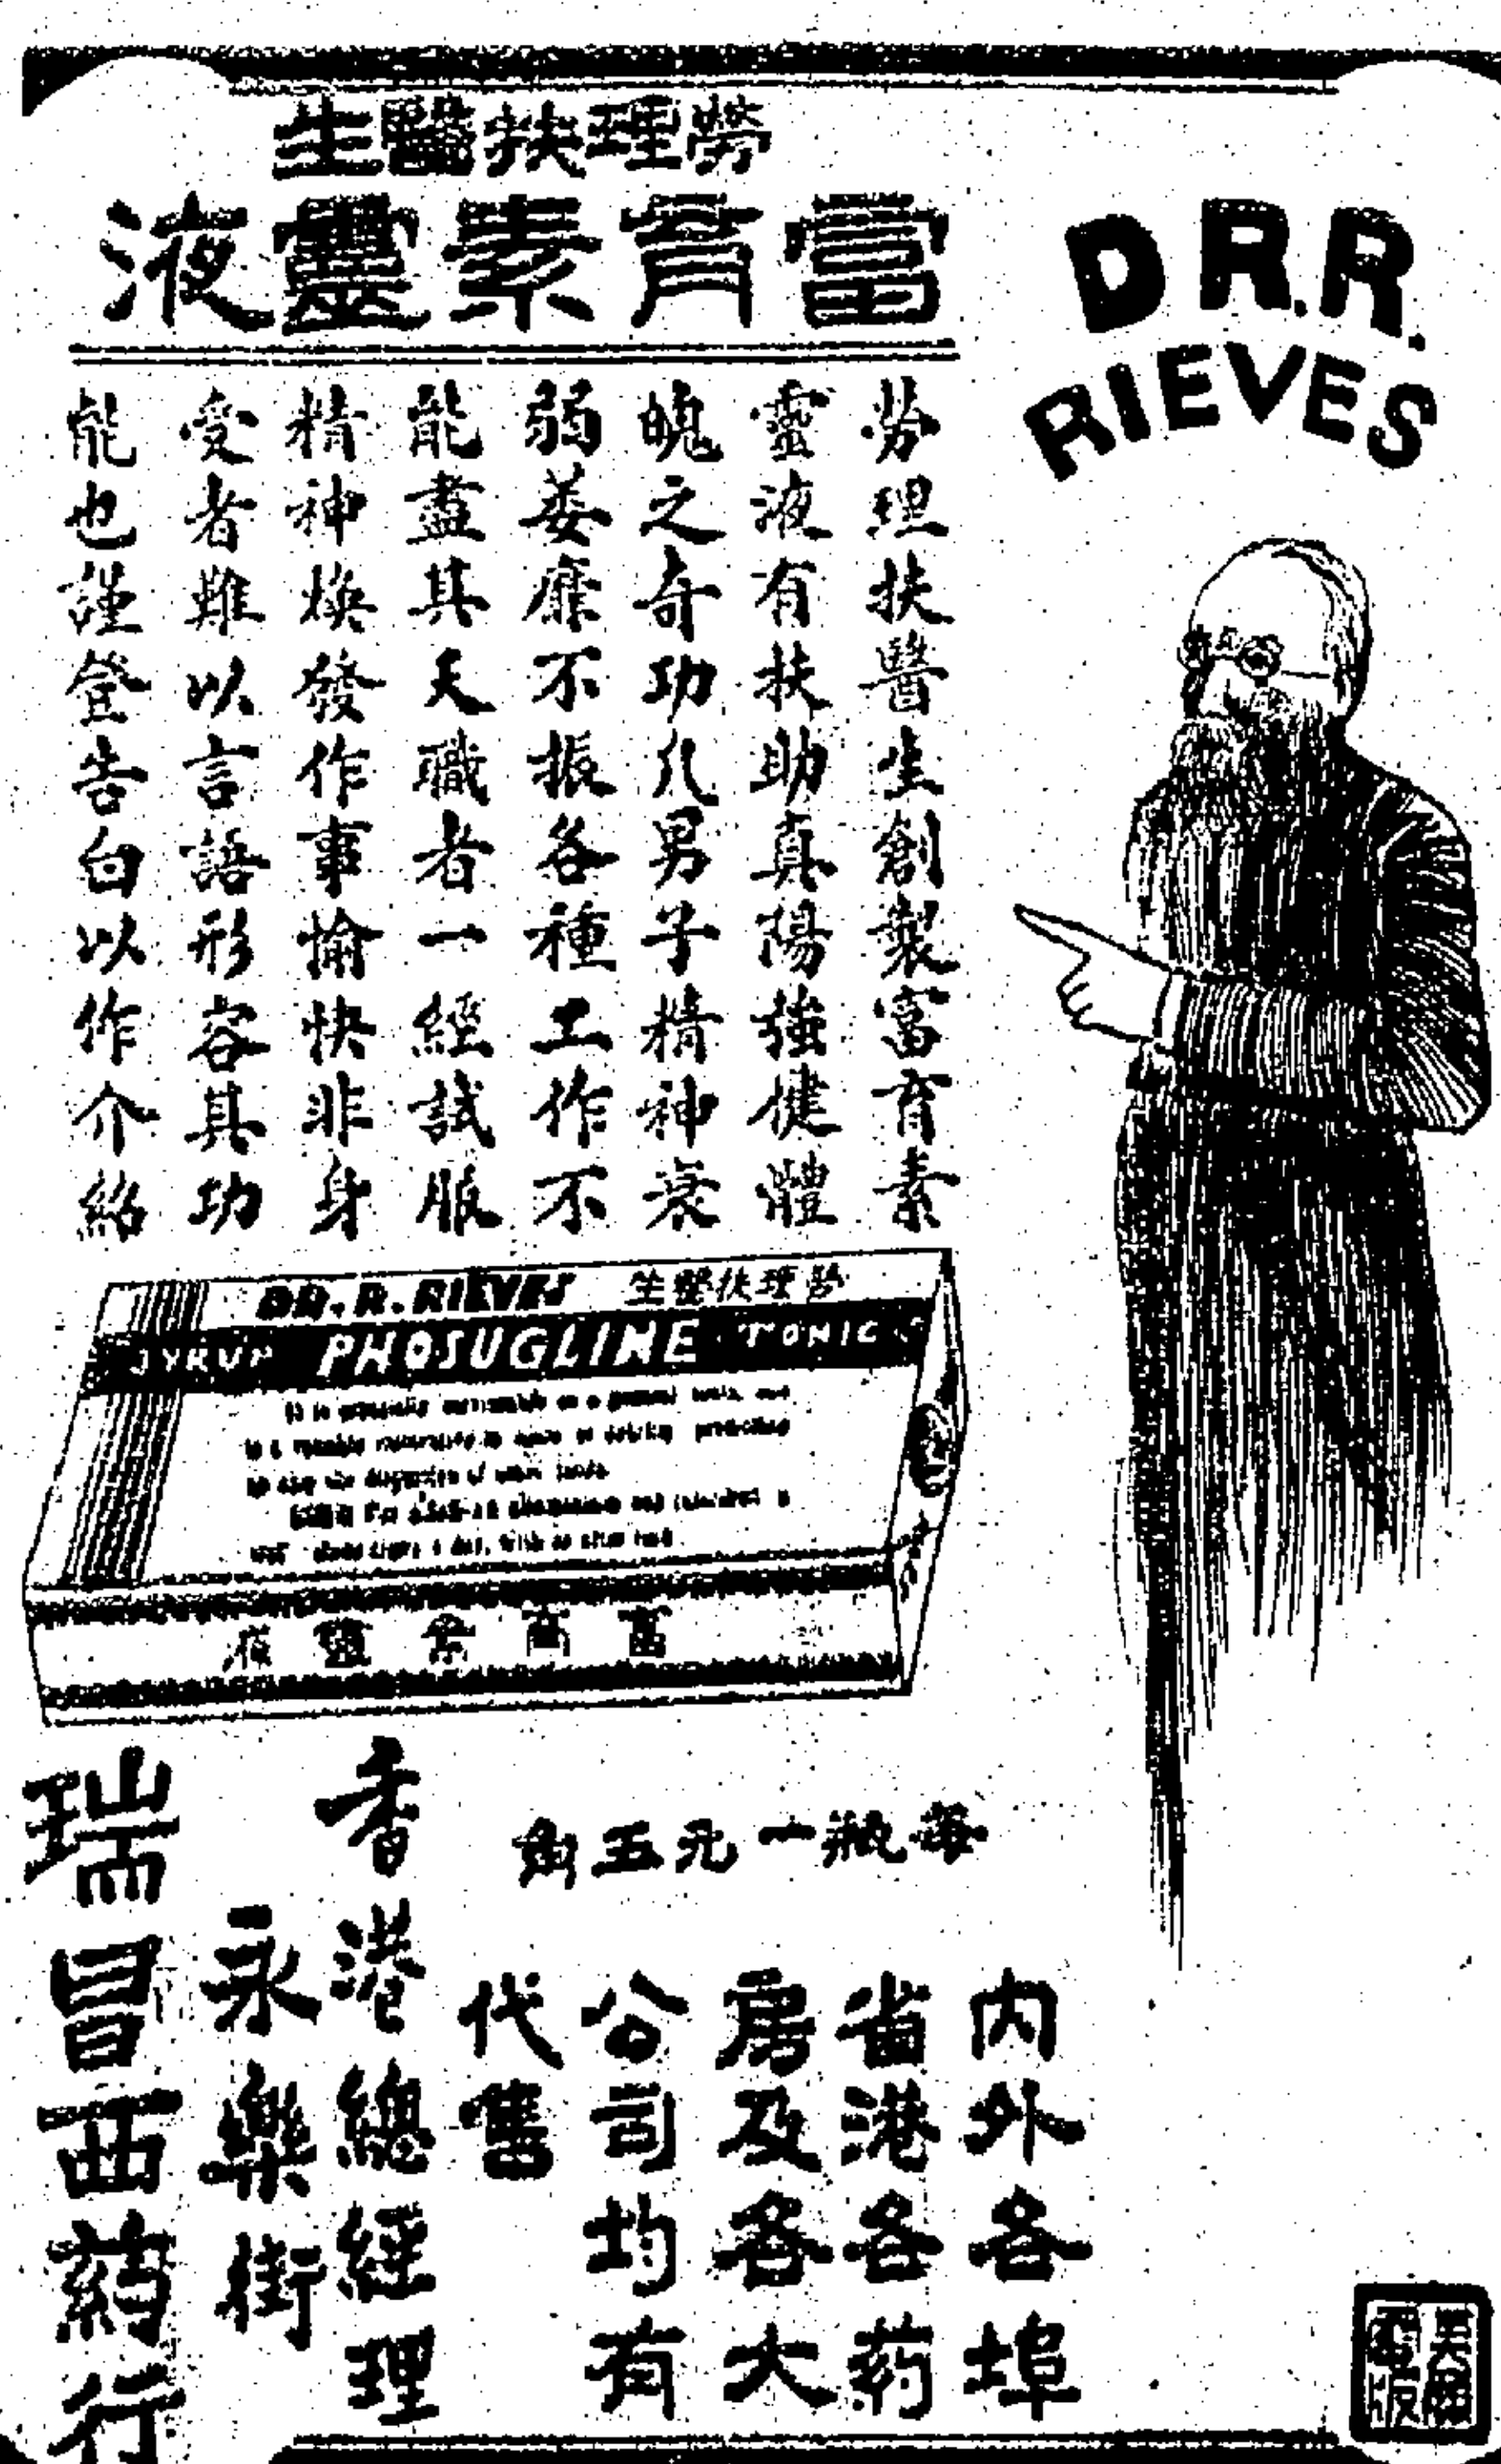 勞理扶醫生
富育素靈液
DR. R.
RIEVES
勞理扶醫生創製富育素
靈液有扶助真陽強健體
魄之奇功凡男子精神衰
弱萎靡不振各種工作不
能盡其天職者一經試服
精神煥發作事愉快非身
受者難以言語形容其功
能也謹登告白以作介紹
DR. R. RIEVES 勞理扶醫生
SYRUP PHOSUGLINE TONIC
富育素靈液
每瓶一元五角
內外各埠
省港各葯
房及各大
公司均有
代售
香港總經理
永樂街
瑞昌西葯行